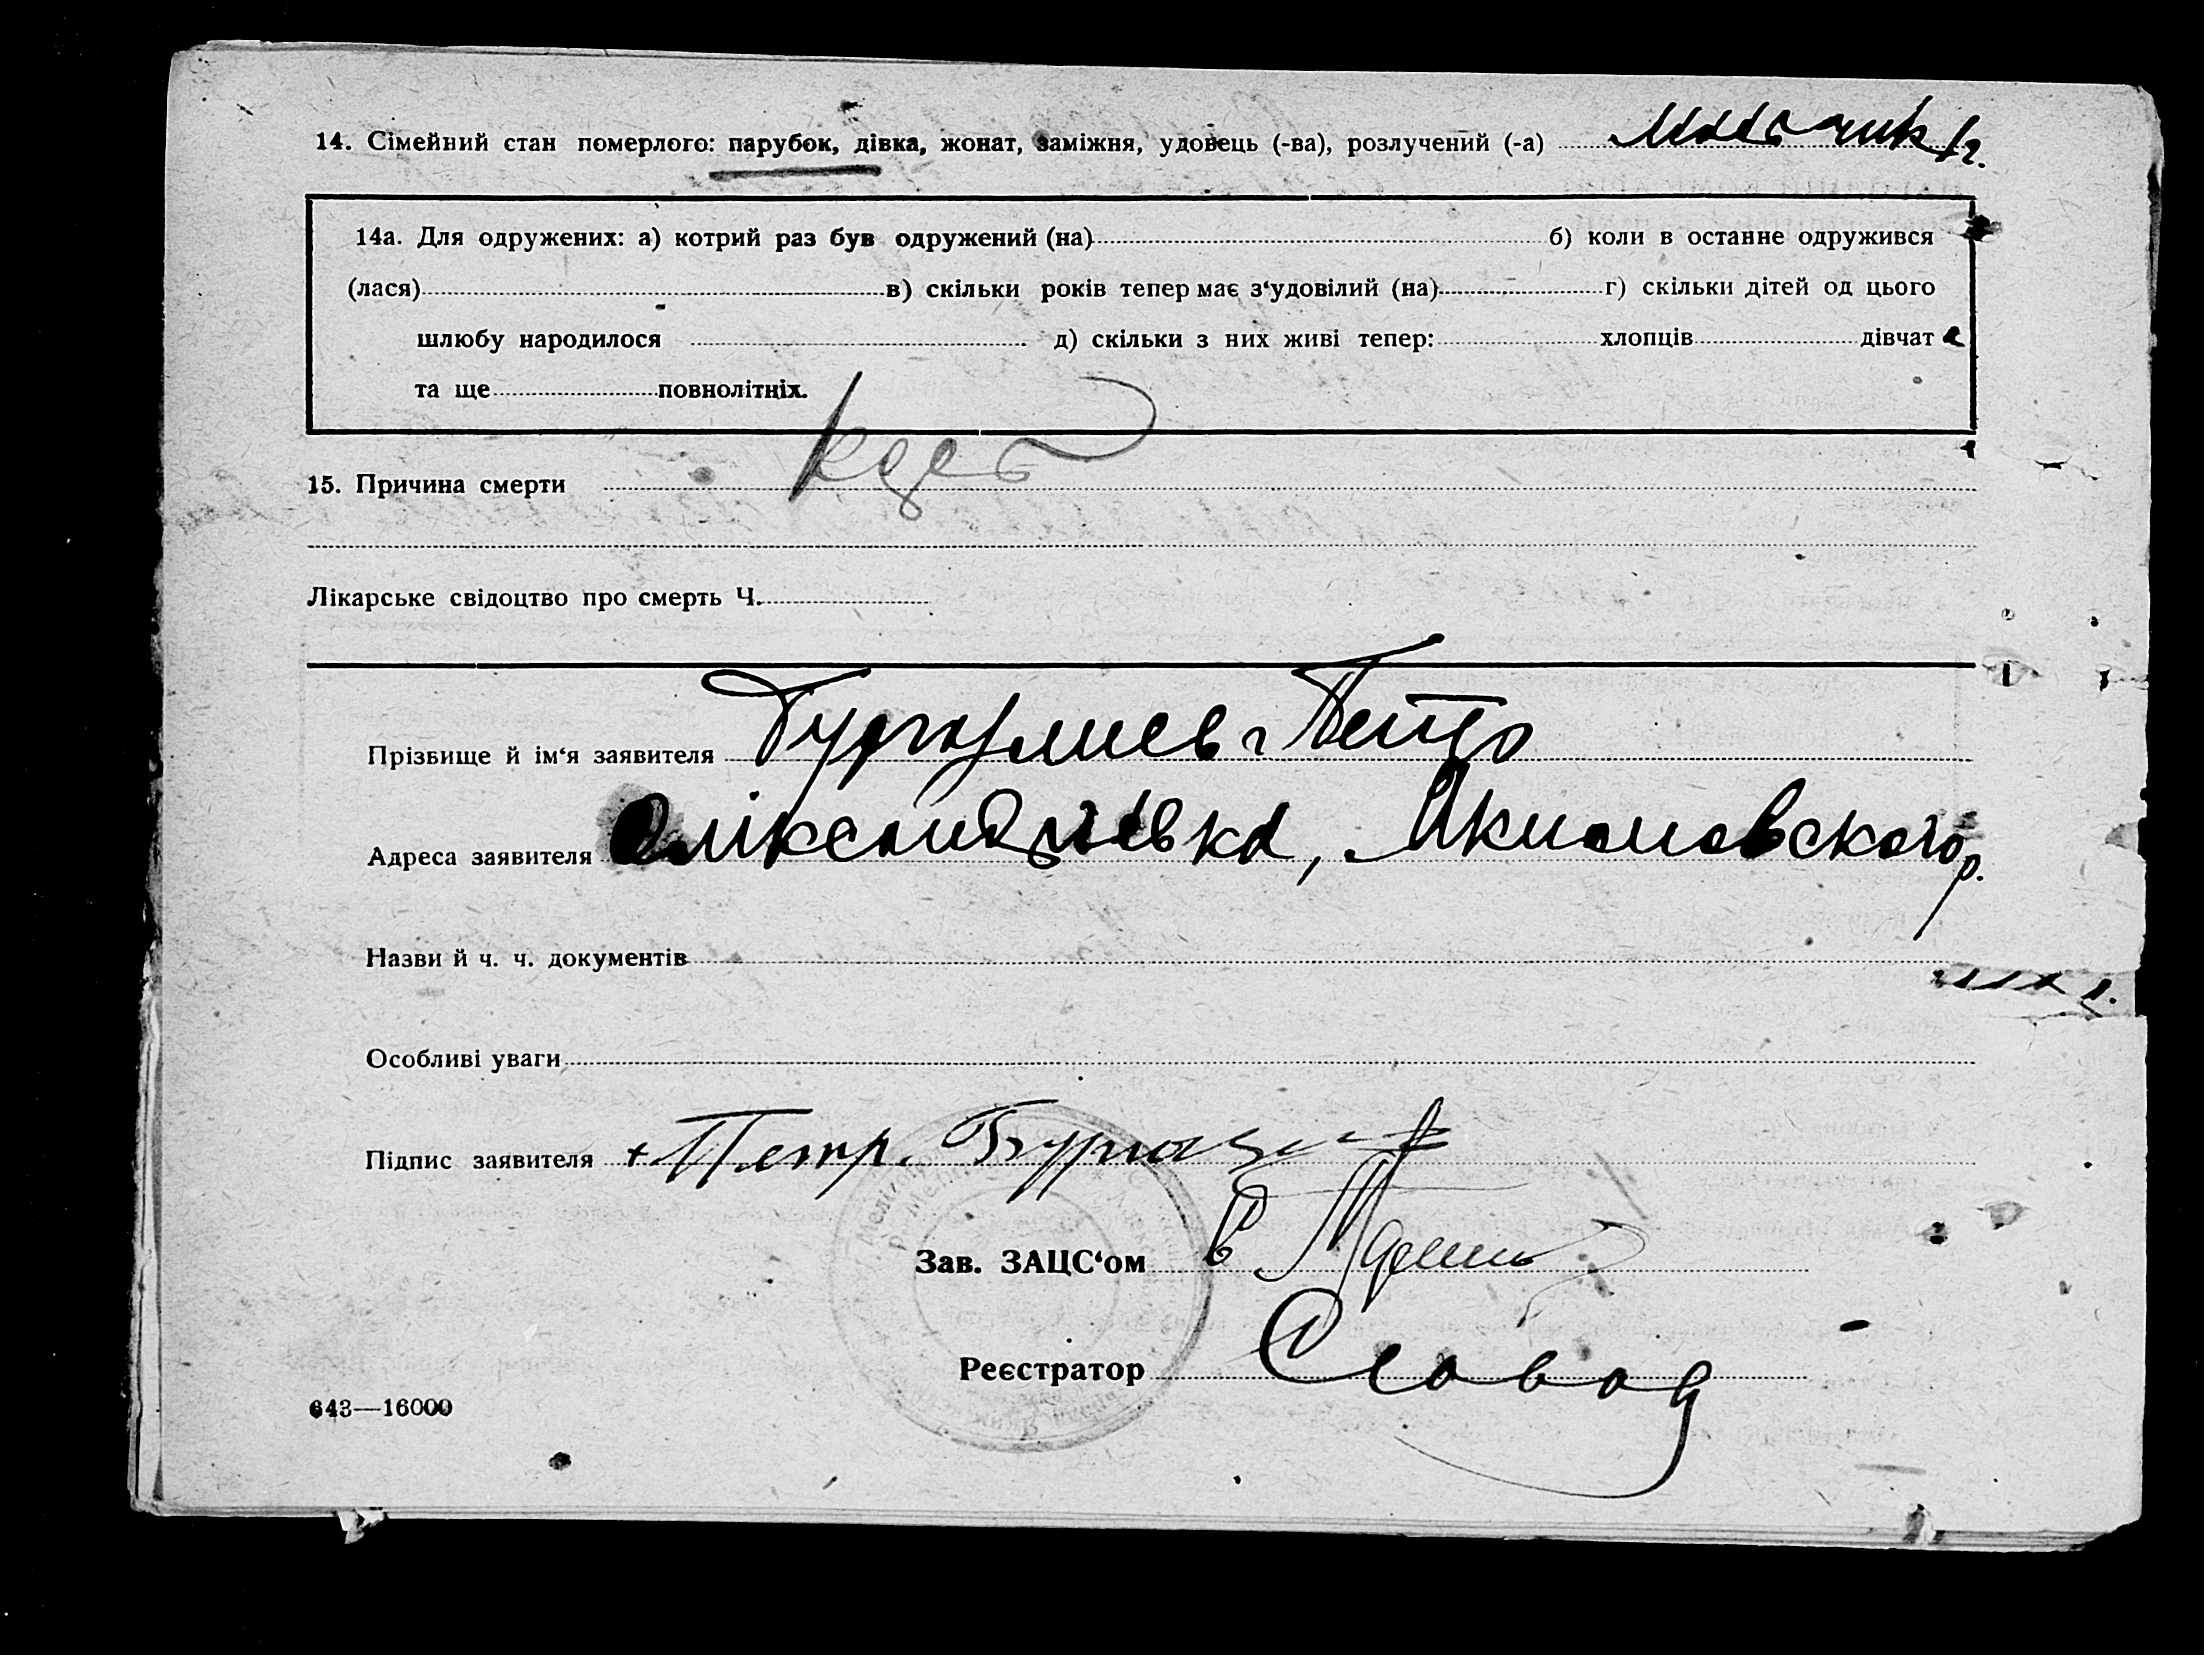 14. Сімейний стан померлого: парубок, дівка, жонат, заміжня, удовець (-ва), розлучений (-а) мальчик 1 г.
14а. Для одружених: а) котрий раз був одружений (на) б) коли в останне одружився
(лася) в) скільки років тепер має з‘удовілий (на) г) скільки дітей од цього
шлюбу народилося д) скільки з них живі тепер: хлопців дівчат
та ще повнолітніх.
15. Причина смерти
Лікарське свідоцтво про смерть Ч.
Прізвище й ім‘я заявителя Петро
Адреса заявителя Оліксандрівка, Якимовского р.
Назви й ч. ч. документів
Особливі уваги
Підпис заявителя + Петр.
Зав. ЗАЦС‘ом
Реєстратор
643—16000